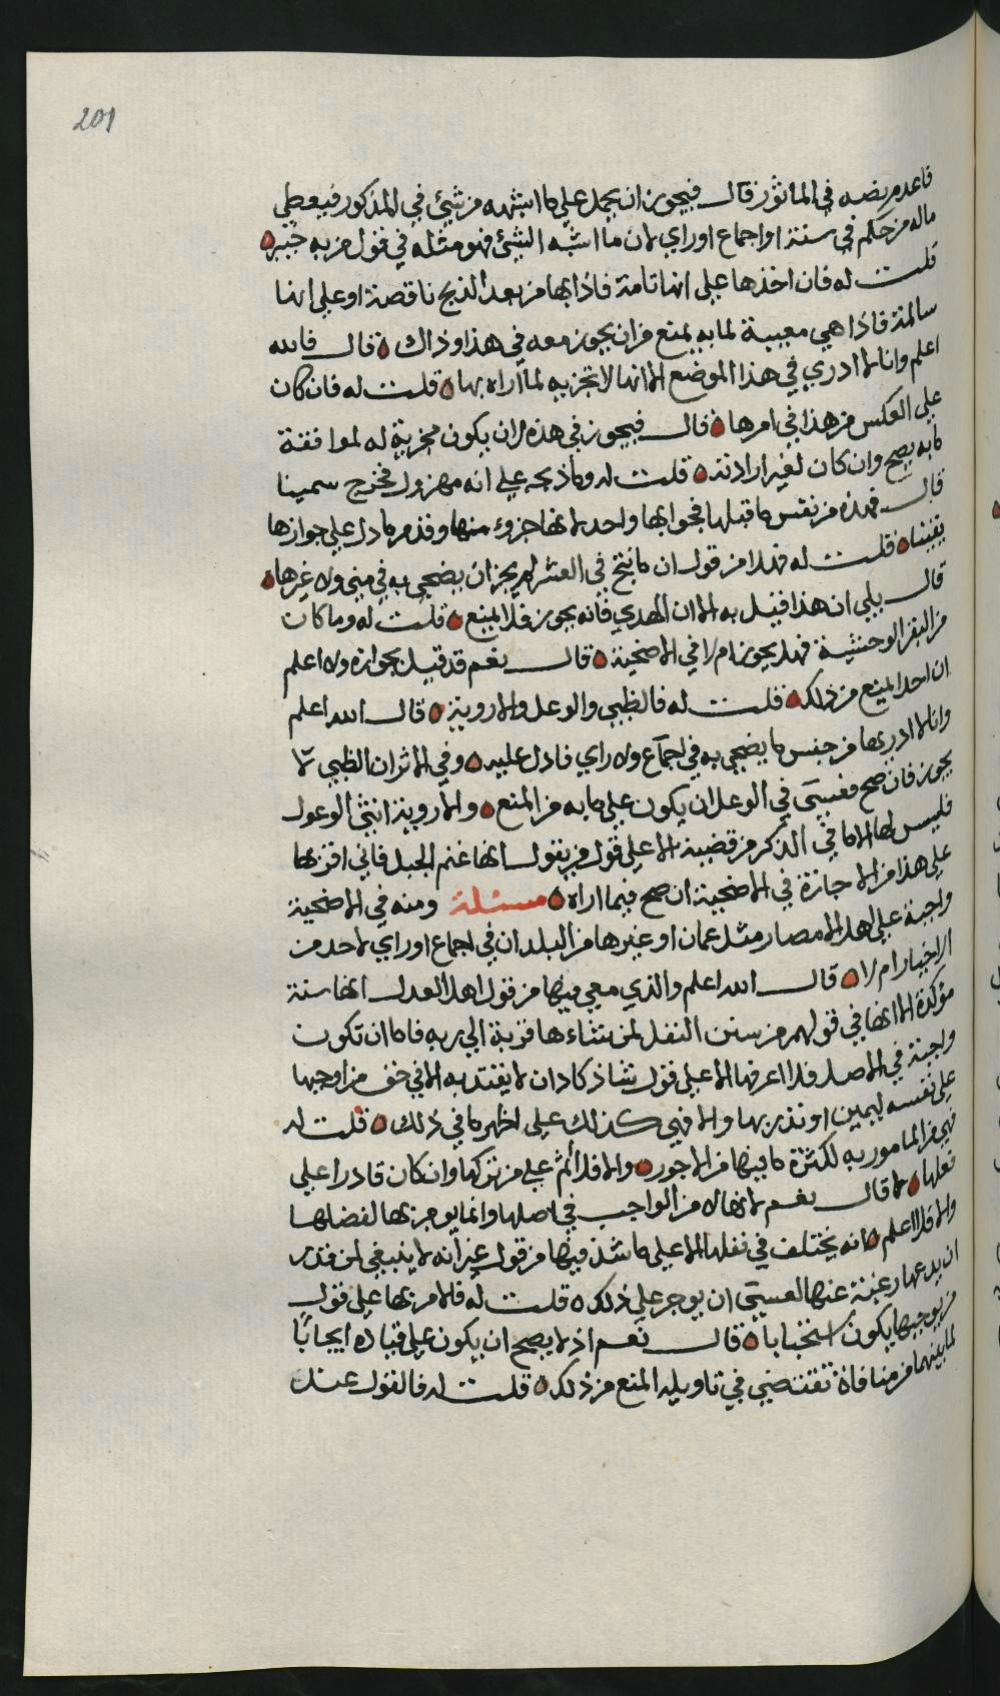 201
قاعد مريضه في الماثور قال فيجوز ان يحمل علي ما اشبهه من شيئ في المذكور فيعطي
ماله من حكم في سنة او اجماع او راي لان ما اشبه الشيئ فهو مثله في قول من به خبير
قلت له فان اخذها علي انها تامة فاذا بها من بعد الذبح ناقصة او علي انها
سالمة فاذا هي معيبة لما به يمنع من ان يجوز معه في هذا وذاك قال فالله
اعلم وانا لا ادري في هذا الموضع الا انها لا تجزيه لما اراه بها قلت له فان كان
علي العكس من هذا في امرها قال فيجوز في هذه لان يكون مجزية له لموافقة
ما به يصح وان كان لغير ارادته قلت له وما ذبحه علي انه مهزول فخرج سمينا
قال فهذه من نفس ما قبلها فجوابها واحد لانها جزوء منها وقد مر ما دل علي جوازها
يقينا قلت له فهل من قول ان ما نتج في العشر لم يجز ان يضحي به في مني ولا غيرها
قال بلي ان هذا قيل به الا ان الهدي فانه يجوز فلا يمنع قلت له وما كان
من البقر الوحشية فهل يجوز ام لا في الاضحية قال نعم قد قيل بجوازه ولا اعلم
ان احدا يمنع من ذلك قلت له فالظبي والوعل والاروية قال الله اعلم
وانا لا ادريها من جنس ما يضحي به في اجماع ولا راي فادل عليه وفي الاثر ان الظبي لا
يجوز فان صح فعسي في الوعل ان يكون علي ما به من المنع والاروية انثي الوعول
فليس لها الا ما في الذكر من قضية الا علي قول من يقول انها غنم الجبل فاني اقربها
علي هذا من الاجازة في الاضحية ان صح فيما اراه مسئلة ومنه في الاضحية
واجبة علي اهل الامصار مثل عمان او غيرها من البلدان في اجماع او راي لاحد من
الاخيار ام لا قال الله اعلم والذي معي فيها من قول اهل العدل انها سنة
مؤكدة الا انها في قولهم من سنن النفل لمن شاءها قربة الي ربه فاما ان تكون
واجبة في الاصل فلا اعرفها الا علي قول شاذ كاد ان لا يعتد به الا في حق من اوجبها
علي نفسه ليمين او نذر بها والا فهي كذلك علي اظهر ما في ذلك قلت له
فهي من المامور به لكثرة ما فيها من الاجور والا فلا اثم علي من تركها وان كان قادرا علي
فعلها لا قال نعم لانها لا من الواجب في اصلها وانما يومر بها لفضلها
والا فلا اعلم انه يختلف في نفلها الا علي ما شذ فيها من قول غير انه لا ينبغي لمن قدر
ان يدعها رغبة عنها لعسي ان يوجر علي ذلك قلت له فالامر بها علي قول
من يوجبها يكون استحبابا قال نعم اذ لا يصح ان يكون علي قياده ايجابا
لما بينهما من منافاة تقتضي في تاويله المنع من ذلك قلت له فالقول عند